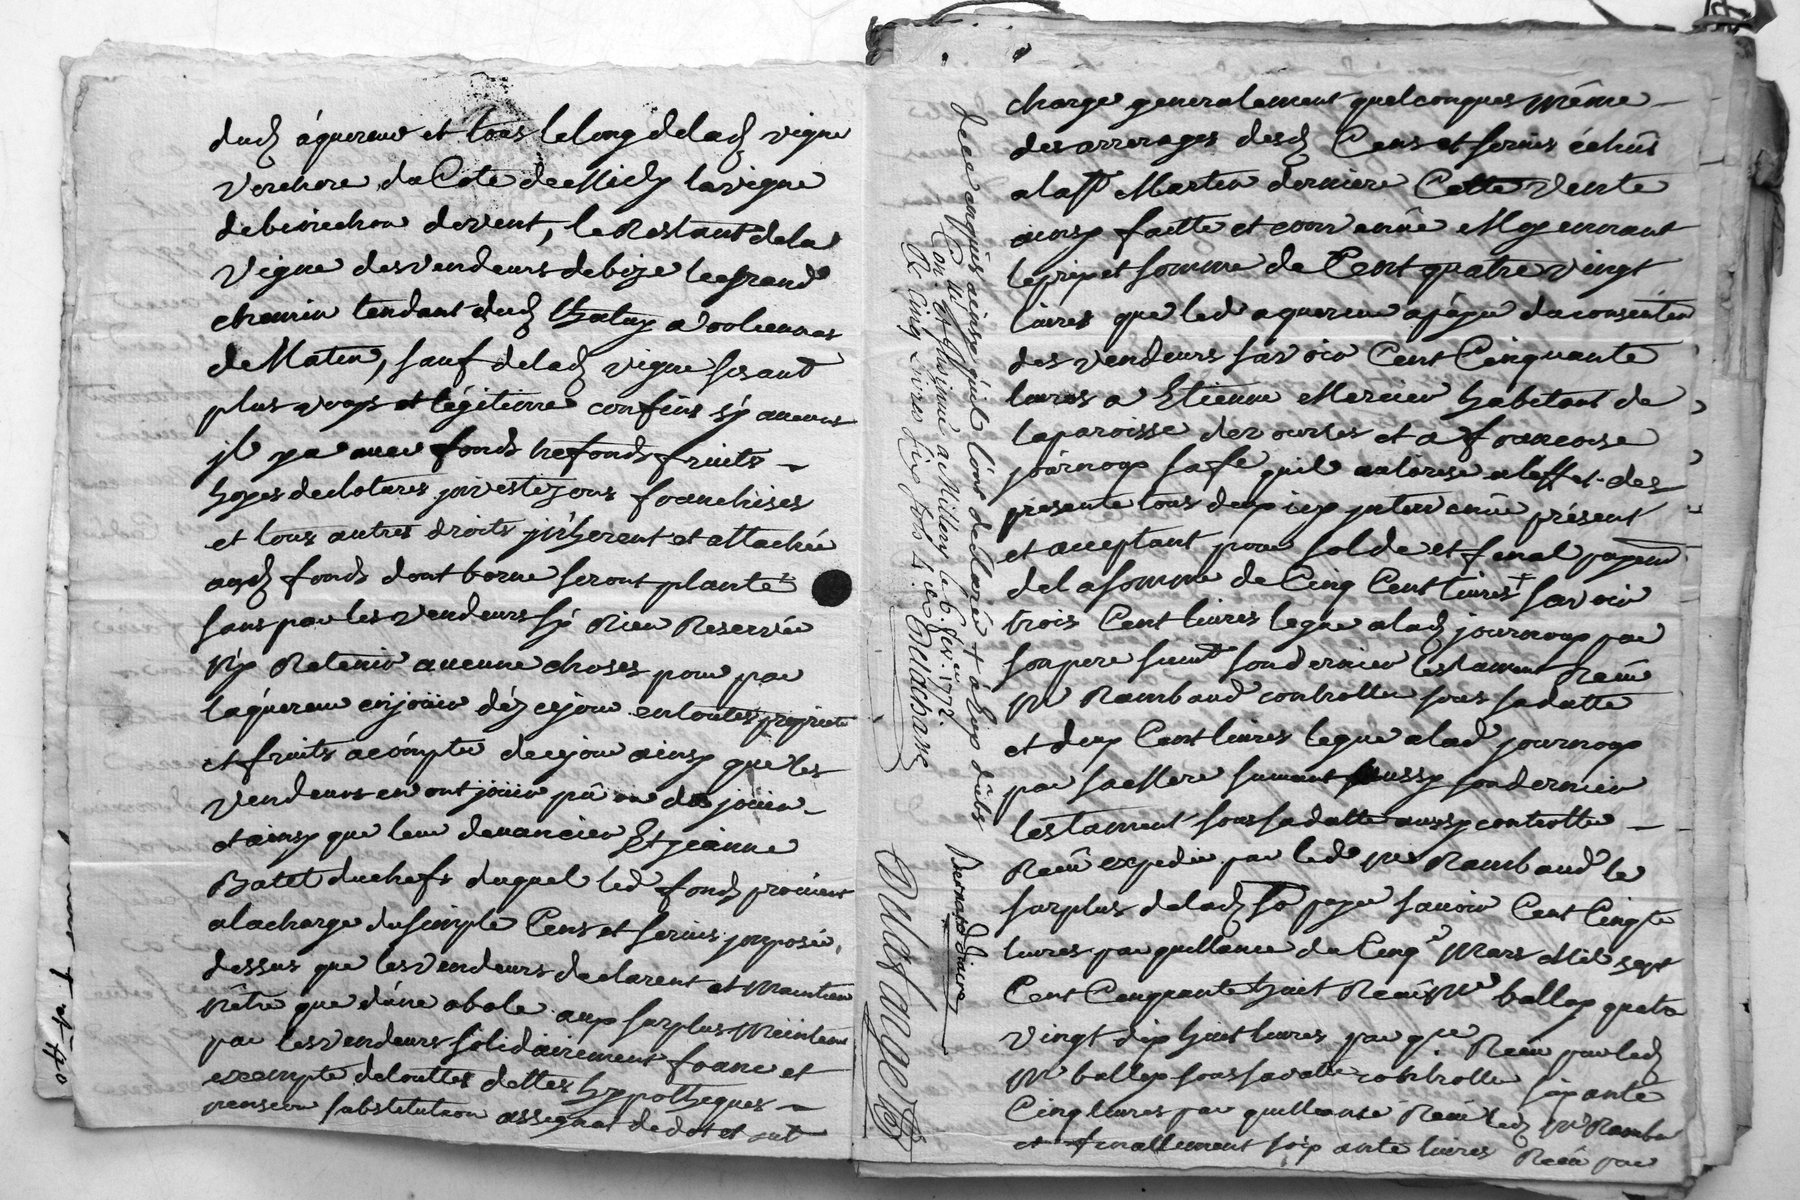 dud aquereur et tous le long de lad vigne
verchere du Coté de Midy la vigne
de bereichon de vent, le Restant de la
vigne des vendeurs de bize le grand
chemin tendant dud a
de Matin, sauf de lad vigne ses autd
plus vrays et légitime confins sÿ aucuns
jl ya avec fonds trefonds fruits
hayes de clotures jnvestizons franchises
et tous autres droits jnherent et attachée
aud fonds dont borne seront plante
sans par les vendeurs sÿ Rien Reservée
nÿ Retenir aucune choses pour par
laquereur en joüir déz ce jour en toutes propriete
et fruits acómpter de ce jour ainsy que les
vendeurs en ont joüir pû ou dû joüir
et ainsy que leur devancier Et jeanne
Batet du chefs duquel led fonds provient
a la charge du simple Cens et servis jmposée
dessus que les vendeurs declarent et maintien
nêtre que dune obole au surplus maintenu
par les vendeurs solidairement franc et
exempte de touttes dettes hypotheques
pension substitution assignat de dot et aut
Bernard Diacre
Delachasse
Dulfange
charge generalement quelconques même
des arrerages desd Cens et servis échûs
a la st Martin derniere Cette vente
ainsy faitte et convenüe Moyennant
le prix et somme de Cent quatre vingt
livres que led aquereur a páyer du consenten
des vendeurs sávoir Cent Cinquante
livres a Etienne Mercier habitant de
la paroisse de vourles et a francoise
journoux sa fe quil autorise a leffet des
presente tous deux icy jntervenüe présent
et acceptant pour solde et final payemt
de la somme de Cinq Cent livres + savoir
trois Cent livres legué a lad journoux par
son pere suivt son dernier testament Reçu
Me Rambaud controllé sous sa datte
et deux Cent livres legue a lad journoux
par sa Mere suivant aussy son dernier
testament sous sa datte aussy controllé
Reçu expedié par led me Rambaud le
surplus de lad so payer savoir Cent Cinqte
livres par quittance du Cinq Mars Mil sept
Cent Cinquante huit Reçu Me ballay quatre
vingt dix huit livres par qce Reçu par led
Me ballay sous sa datte controllé soixante
Cinq livres par quittance Reçu led Me Rambau
et finallement soixante livres Reçu par
de ce enquis ainsy quil lont declarée + a Eux dûbs
Con. et jnsinué a Millery le 6. fev. 1772.
R Cinq livres dix sols